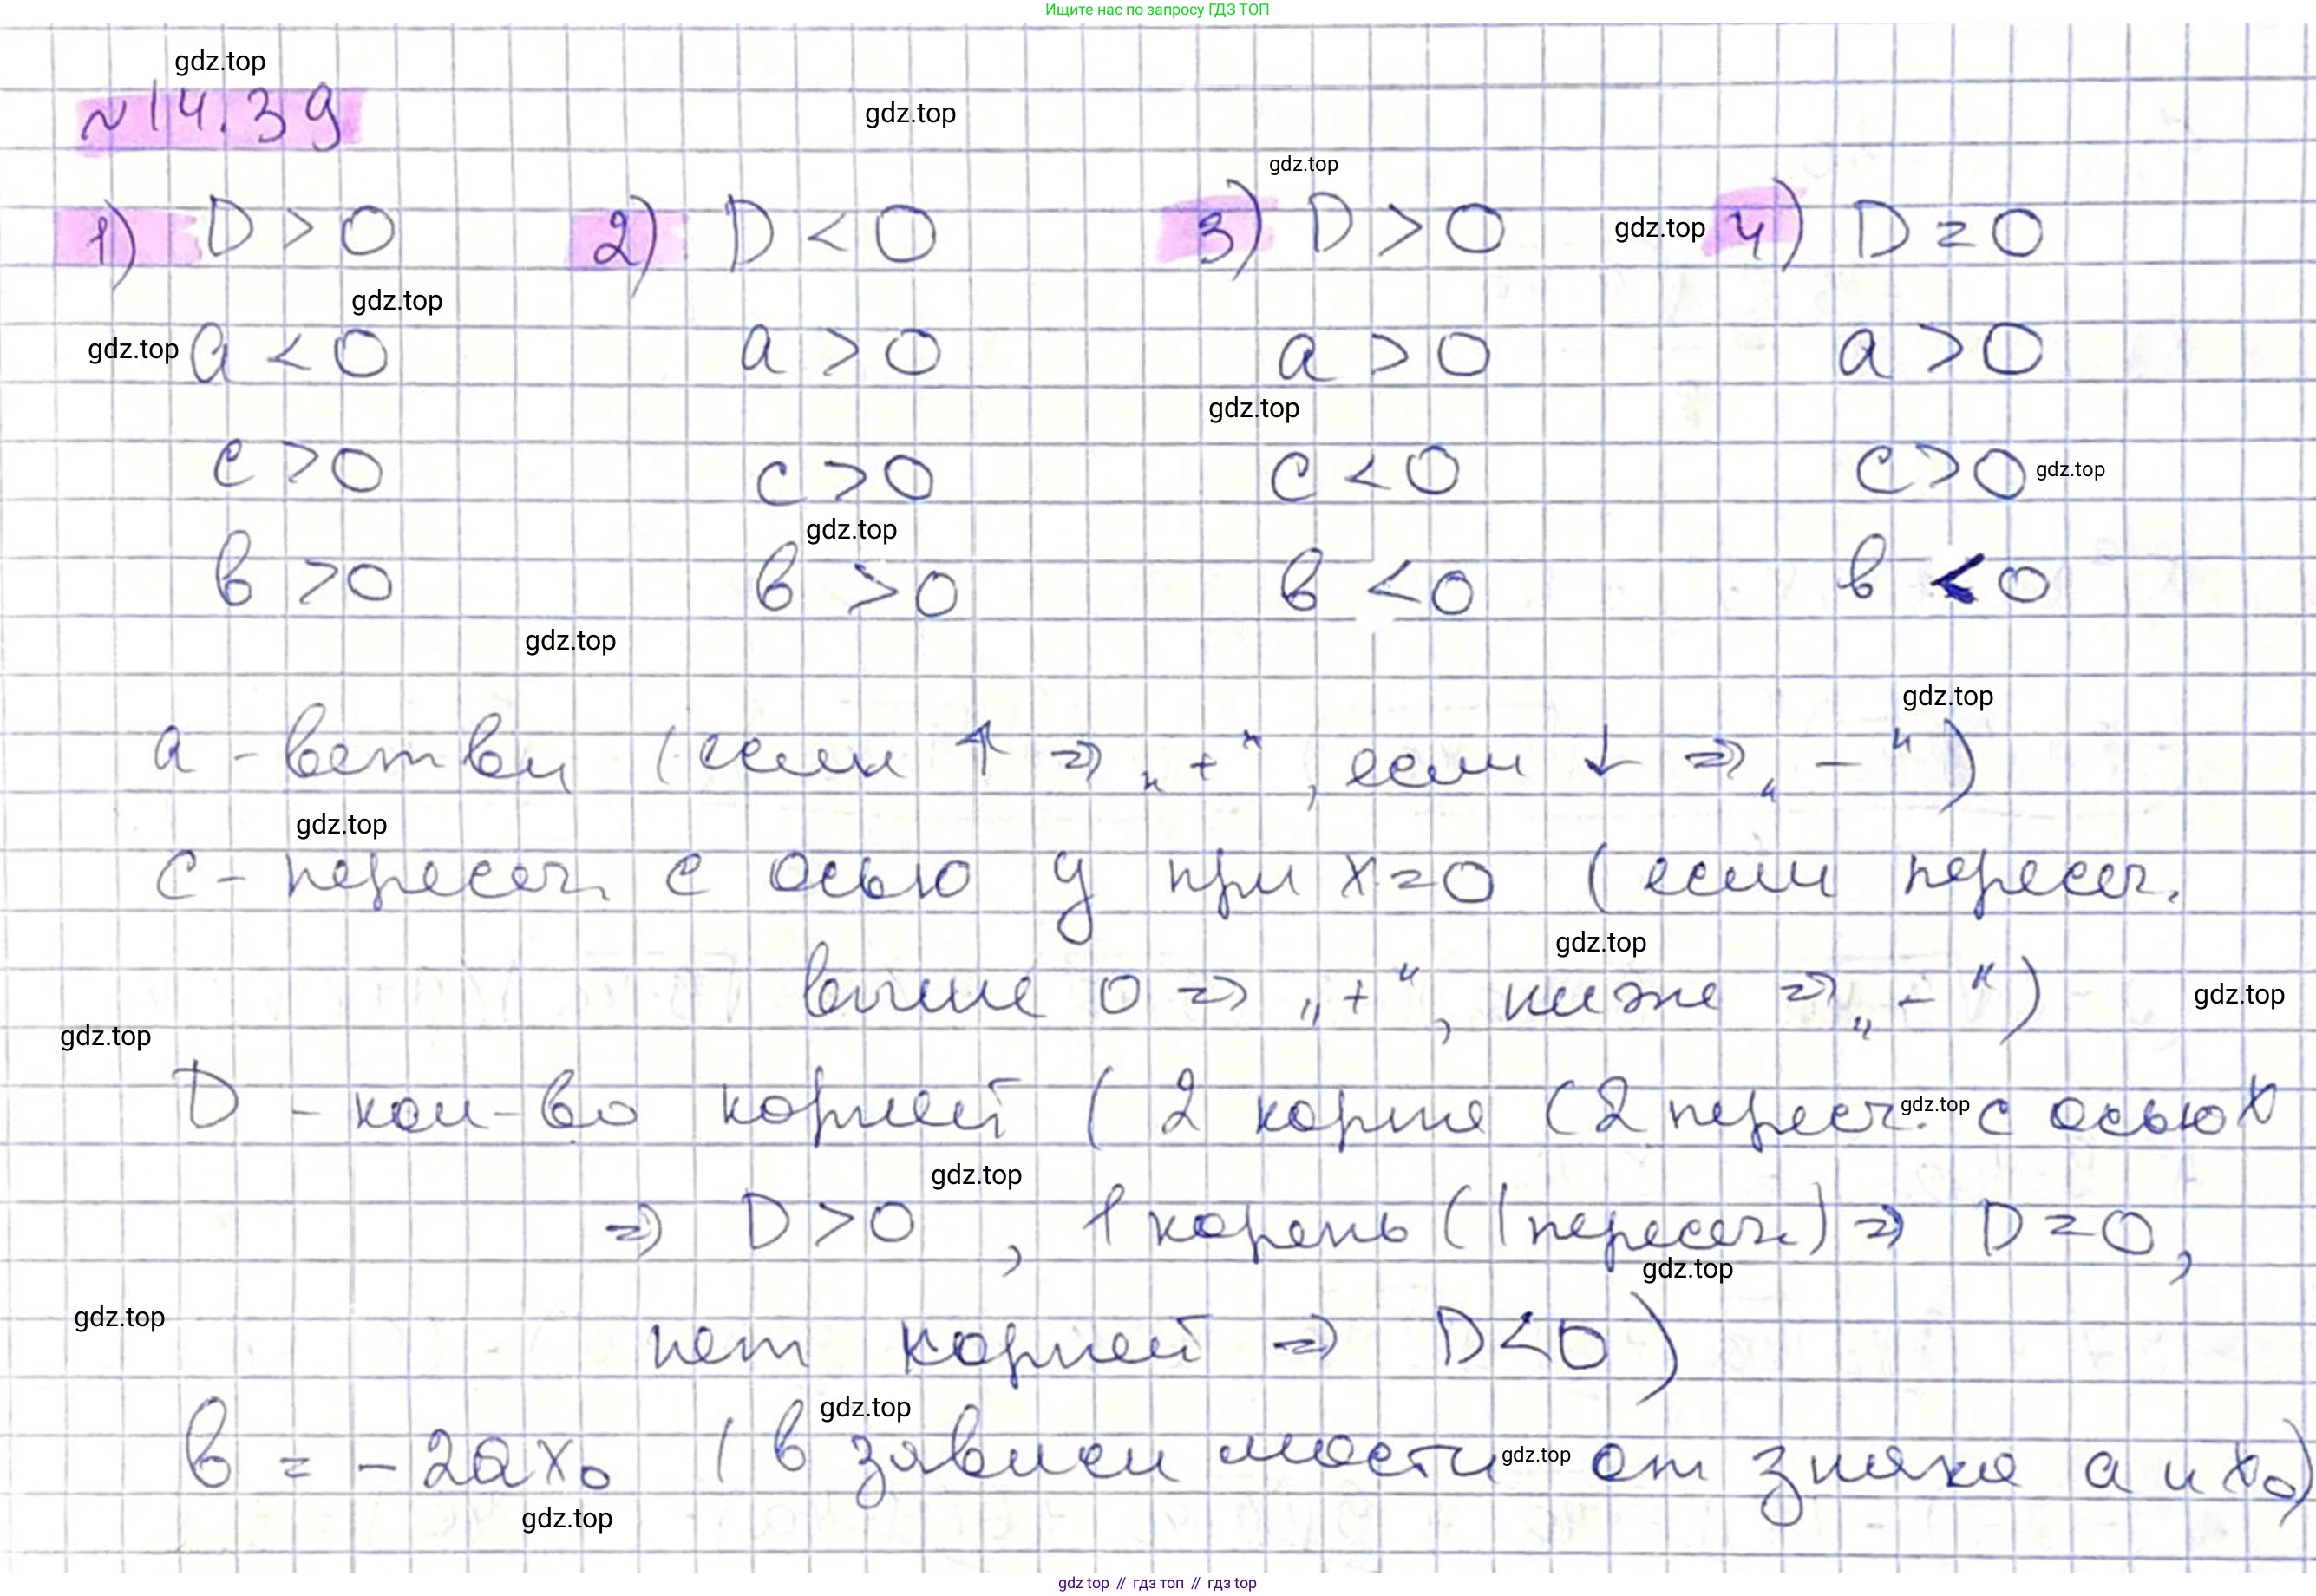 Ищите нас по запросу ГДЗ ТОП
gdz.top
№14.39
gdz.top
gdz.top
1) D > 0 2) D < 0 3) D > 0 gdz.top 4) D = 0
gdz.top
gdz.top a < 0 a > 0 a > 0 a > 0
gdz.top
c > 0 c > 0 c < 0 c > 0 gdz.top
gdz.top
в > 0 в > 0 в < 0 в < 0
gdz.top
gdz.top
a - ветви (если ↑ ⇒ „+“, если ↓ ⇒ „-“)
gdz.top
c - пересеч. с осью y при x = 0 (если пересеч.
gdz.top
выше 0 ⇒ „+“, ниже ⇒ „-“) gdz.top
gdz.top
D - кол-во корней (2 корня (2 пересеч. gdz.top с осью x
gdz.top
⇒ D > 0, 1 корень (1 пересеч.) ⇒ D = 0,
gdz.top
gdz.top
нет корней ⇒ D < 0)
gdz.top
в = -2ax₀ (в зависимости gdz.top от знака a и x₀)
gdz.top
gdz top // гдз топ // гдз top